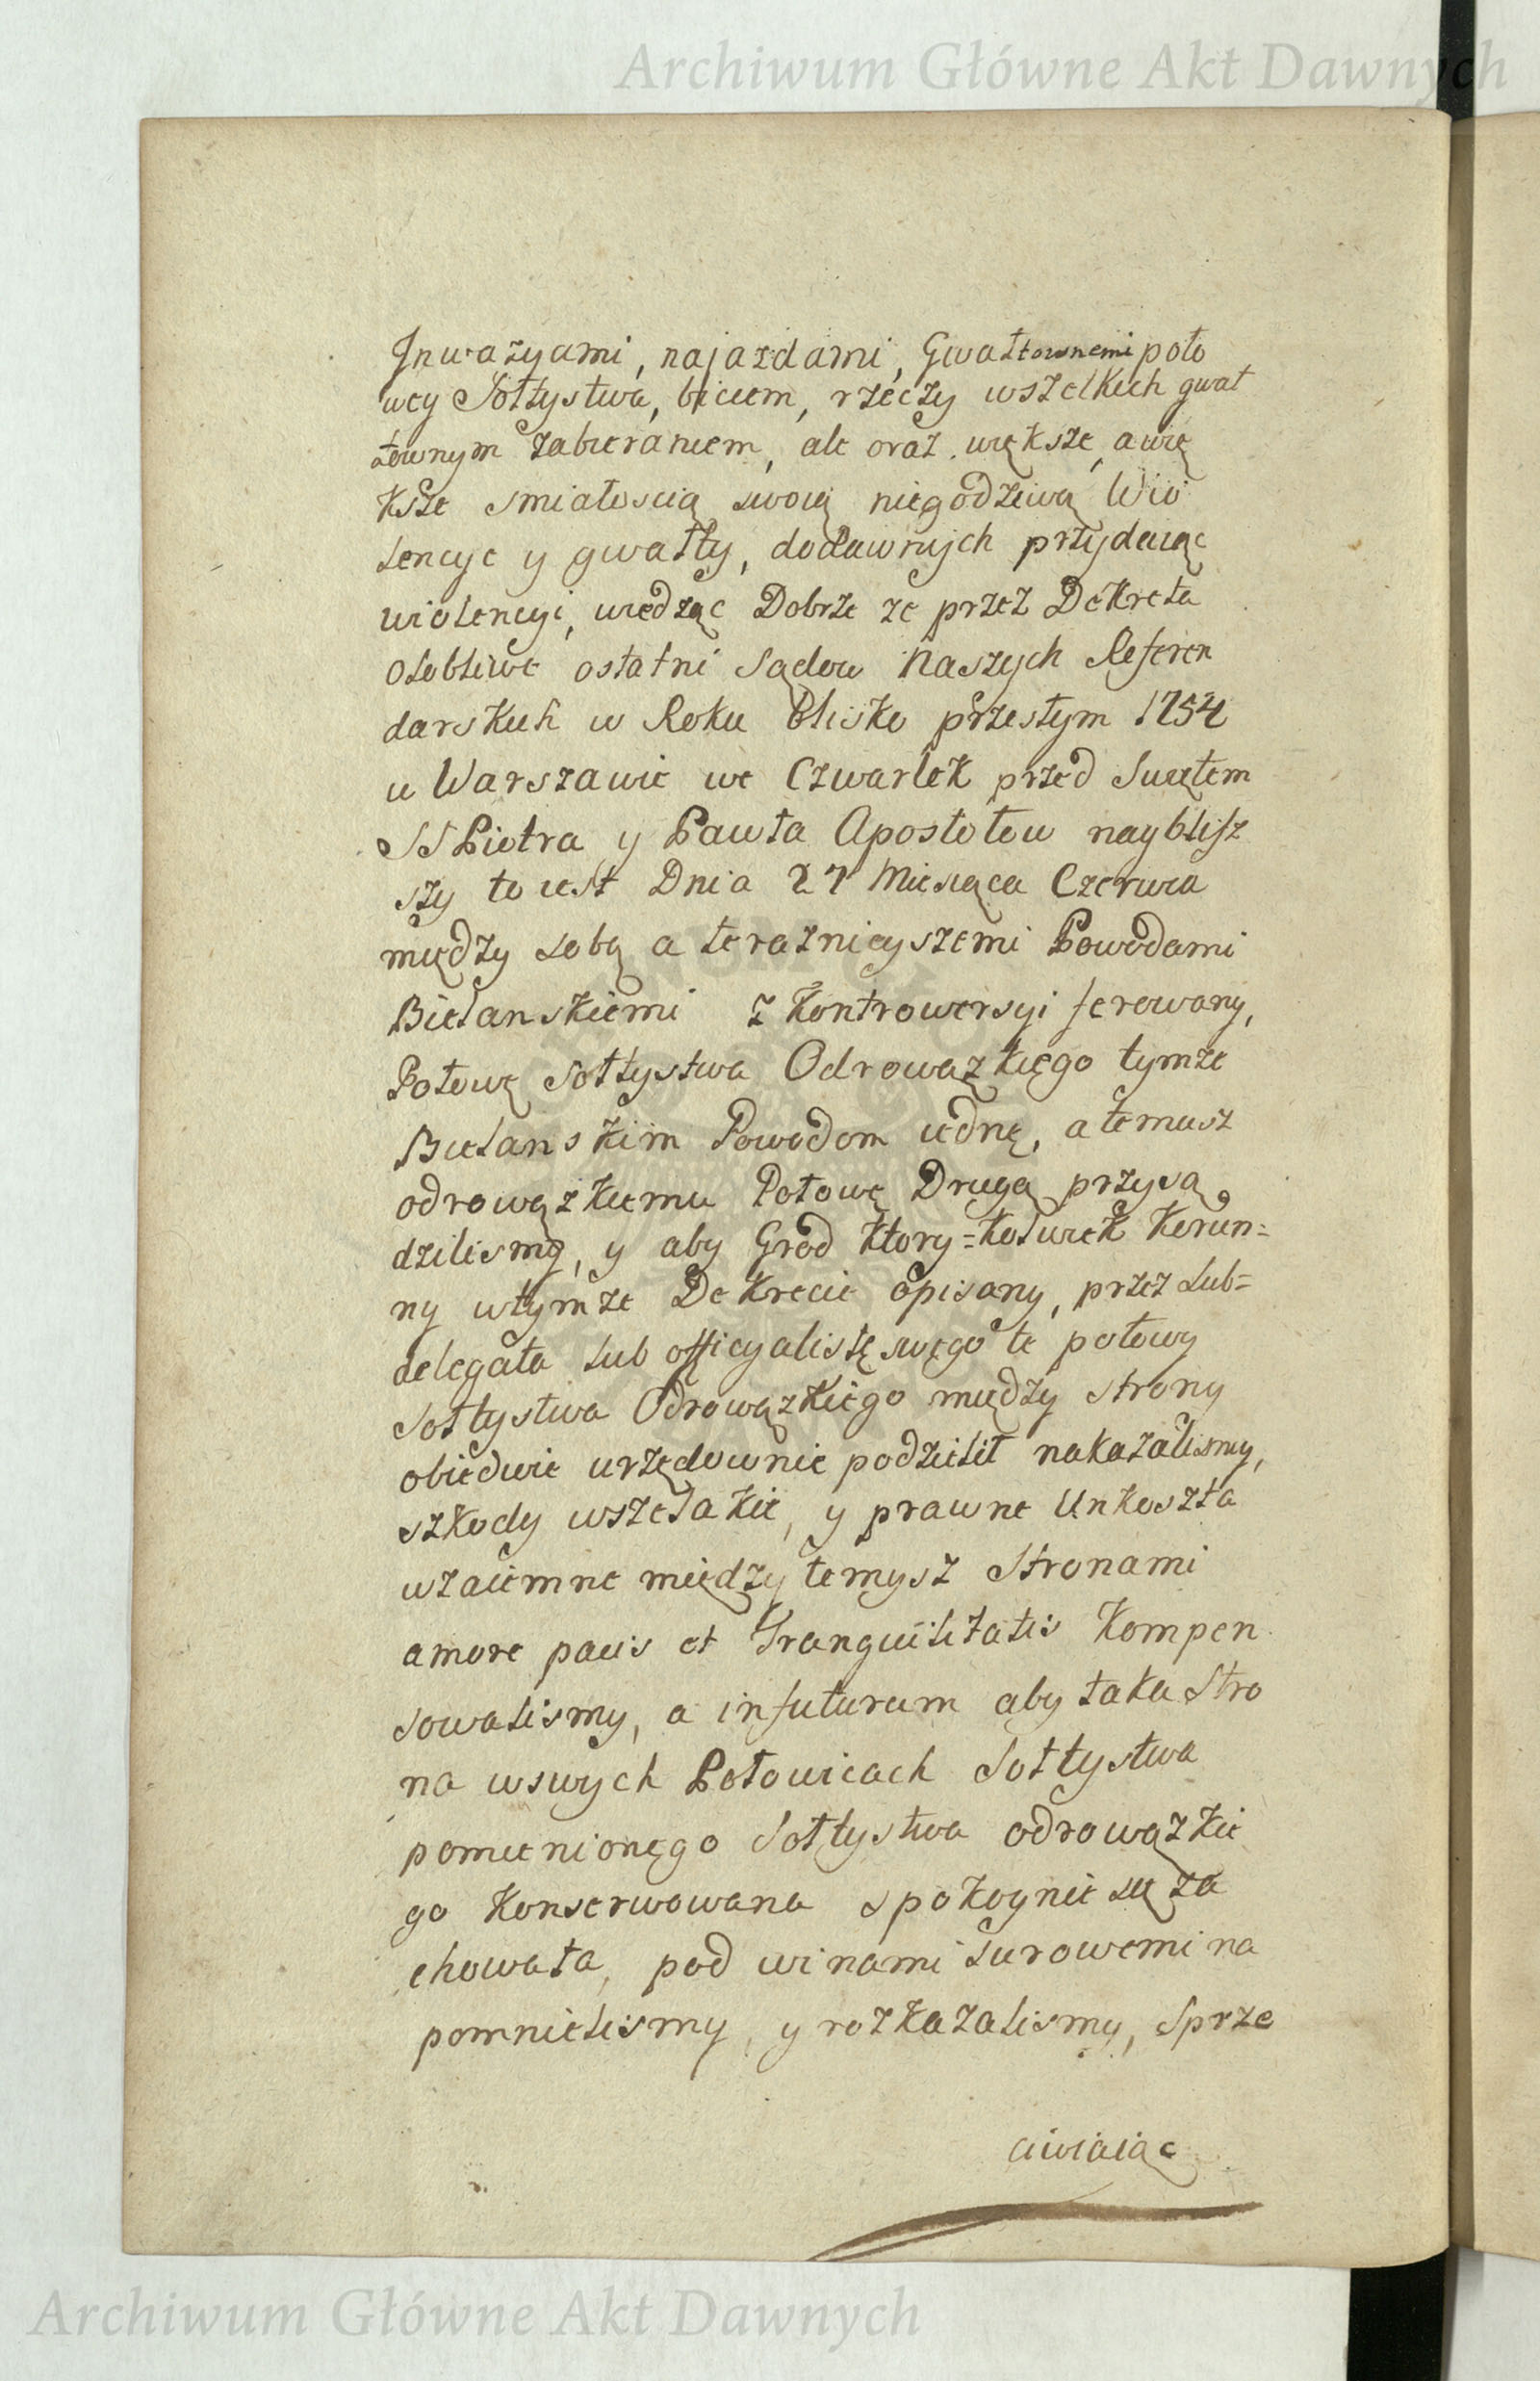 Archiwum Główne Akt Dawnych
Inwazyami, najazdami, Gwałtownemi poło
wey Sołtystwa, biciem, rzeczy wszelkich gwał
townym zabieraniem, ale oraz większe, a wię
ksze smiałoscią swoią niegodziwą Wio
lencye y gwałty, do dawnych przydaiąc
wiolencyi, wiedząc Dobrze ze przez Dekreta
osobliwe ostatni Sądow Naszych Referen
darskich w Roku blisko przesłym 1754
w Warszawie we Czwartek przed Swiętem
SS Piotra y Pawła Apostołow nayblisz
szy to iest Dnia 27 Miesiąca Czerwca
między sobą a teraznieyszemi Powodami
Bielanskiemi z Kontrowersyi ferowany,
Połowę Sołtystwa Odrowązkięgo tymze
Bielanskim Powodom iednę, a temusz
odrowązkiemu Połowę Drugą przysą
dzilismy, y aby Grod ktory=kolwiek Korun=
ny wtymze Dekrecie opisany, przez Sub=
delegata lub officyalistę swęgo te połowy
Sołtystwa Odrowązkiego między strony
obiedwie urzędownie podzielił nakazalismy,
szkody wszelakie, y prawne Unkoszta
wzaiemne między temysz Stronami
amore pacis et Tranquilitatis Kompen
sowalismy, a infuturum aby taka Stro
na wswych Połowicach Sołtystwa
pomienionęgo Sołtystwa odrowązkie
go Konserwowana spokoynie się za
chowała, pod winami surowemi na
pomnielismy, y rozkazalismy, Sprze
ciwiaiąc
Archiwum Główne Akt Dawnych